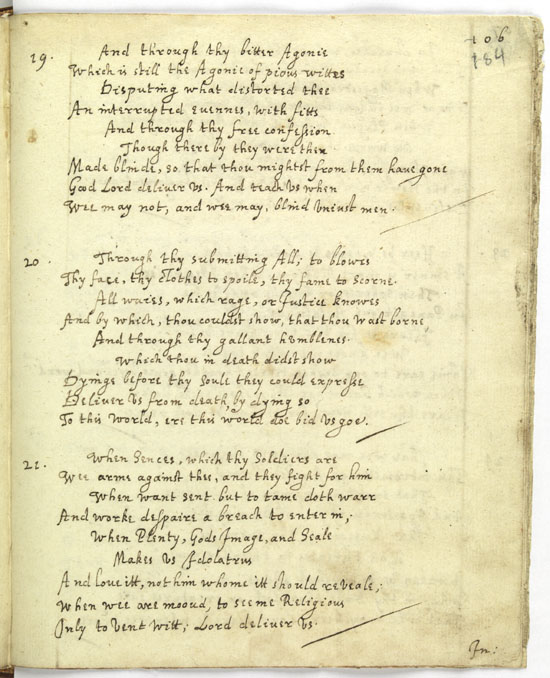 106
184
19. And through thy bitter Agonie
Which is still the Agonie of pious wittes
Disputing what distorted thee
An interrupted euennes, with fitts
And through thy free confession
Though thereby they were then
Made blinde, so that thou mightst from them haue gone
Good Lord deliver vs. And teach vs when
Wee may not, and wee may, blind vniust men.
20. Through thy submitting All; to blowes
Thy face, thy Clothes to spoile, thy fame to scorne.
All waies, which rage, or Justice knowes
And by which, thou couldst show, that thou wast borne,
And through thy gallant humblenes.
Which thou in death didst show
Dyinge before thy soule they could expresse
Deliver vs from death, by dying so
To this world, ere this world doe bid vs goe.
21. When Sences, which thy Soldiers are
Wee arme against thee, and they fight for him
When want sent but to tame doth warr
And worke despaire a breach to enter in,
When Plenty, Gods Image, and Seale
Makes vs Idolatrus
And love itt, not him whome itt should reveale;
When wee are moovd, to seeme Religious
Only to vent witt; Lord deliver vs.
In: